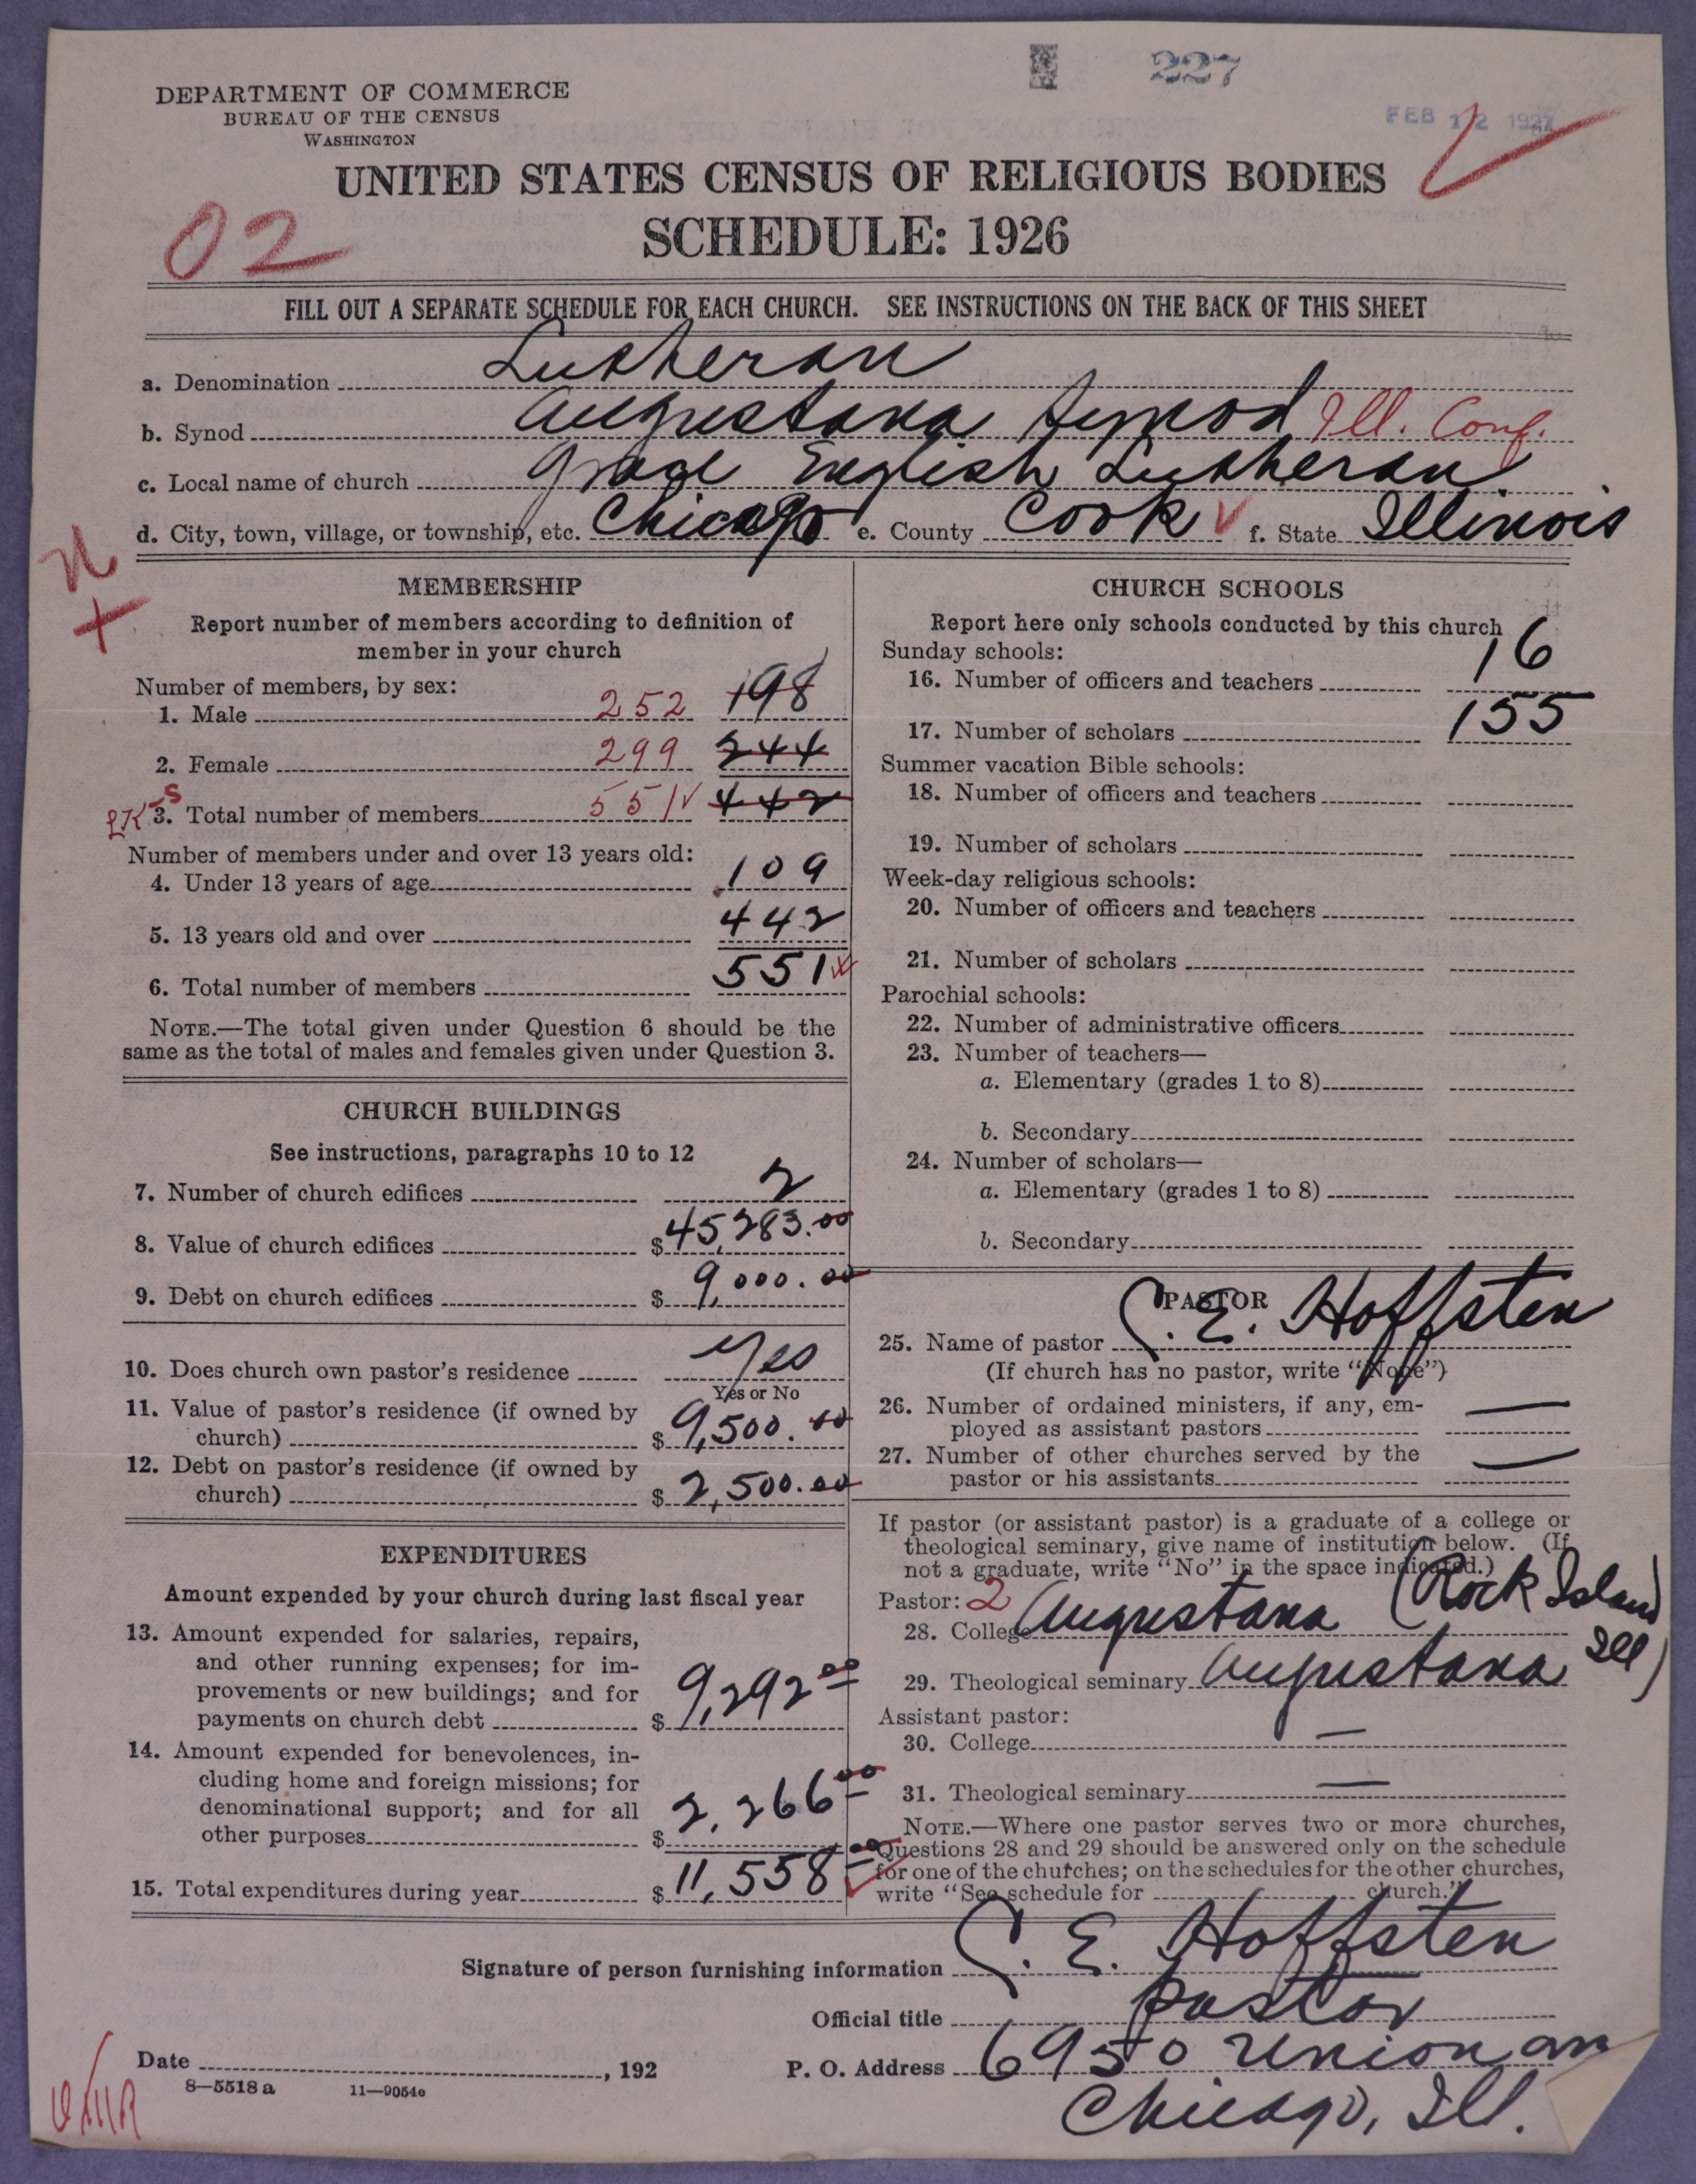 227
FEB 12 1927
DEPARTMENT OF COMMERCE
BUREAU OF THE CENSUS
WASHINGTON
UNITED STATES CENSUS OF RELIGIOUS BODIES
02
SCHEDULE: 1926
FILL OUT A SEPARATE SCHEDULE FOR EACH CHURCH. SEE INSTRUCTIONS ON THE BACK OF THIS SHEET
a. Denomination Lutheran
b. Synod Augustana Synod Ill. Conf.
c. Local name of church Grace English Lutheran
d. City, town, village, or township, etc. Chicago e. County Cook f. State Illinois
MEMBERSHIP
Report number of members according to definition of
member in your church
Number of members, by sex:
1. Male 252 198
2. Female 299 244
3. Total number of members 551 442
Number of members under and over 13 years old:
4. Under 13 years of age 109
5. 13 years old and over 442
6. Total number of members 551
NOTE.—The total given under Question 6 should be the
same as the total of males and females given under Question 3.
CHURCH BUILDINGS
See instructions, paragraphs 10 to 12
7. Number of church edifices 2
8. Value of church edifices $45,283.00
9. Debt on church edifices $9,000.00
10. Does church own pastor's residence Yes
Yes or No
11. Value of pastor's residence (if owned by
church) $9,500.00
12. Debt on pastor's residence (if owned by
church) $2,500.00
EXPENDITURES
Amount expended by your church during last fiscal year
13. Amount expended for salaries, repairs,
and other running expenses; for im-
provements or new buildings; and for
payments on church debt $9,292 00
14. Amount expended for benevolences, in-
cluding home and foreign missions; for
denominational support; and for all
other purposes $2,266 00
15. Total expenditures during year $11,558 00
CHURCH SCHOOLS
Report here only schools conducted by this church
Sunday schools:
16. Number of officers and teachers 16
17. Number of scholars 155
Summer vacation Bible schools:
18. Number of officers and teachers
19. Number of scholars
Week-day religious schools:
20. Number of officers and teachers
21. Number of scholars
Parochial schools:
22. Number of administrative officers
23. Number of teachers—
a. Elementary (grades 1 to 8)
b. Secondary
24. Number of scholars—
a. Elementary (grades 1 to 8)
b. Secondary
PASTOR
25. Name of pastor C. E. Hoffsten
(If church has no pastor, write "None")
26. Number of ordained ministers, if any, em-
ployed as assistant pastors —
27. Number of other churches served by the
pastor or his assistants —
If pastor (or assistant pastor) is a graduate of a college or
theological seminary, give name of institution below. (If
not a graduate, write "No" in the space indicated.)
Pastor: 2
28. College Augustana (Rock Island
Ill)
29. Theological seminary Augustana
Assistant pastor:
30. College —
31. Theological seminary —
NOTE.—Where one pastor serves two or more churches,
Questions 28 and 29 should be answered only on the schedule
for one of the churches; on the schedules for the other churches,
write "See schedule for church."
Signature of person furnishing information C. E. Hoffsten
Official title pastor
Date , 192 P. O. Address 6950 Union av
8—5518 a 11—9054e
Chicago, Ill.